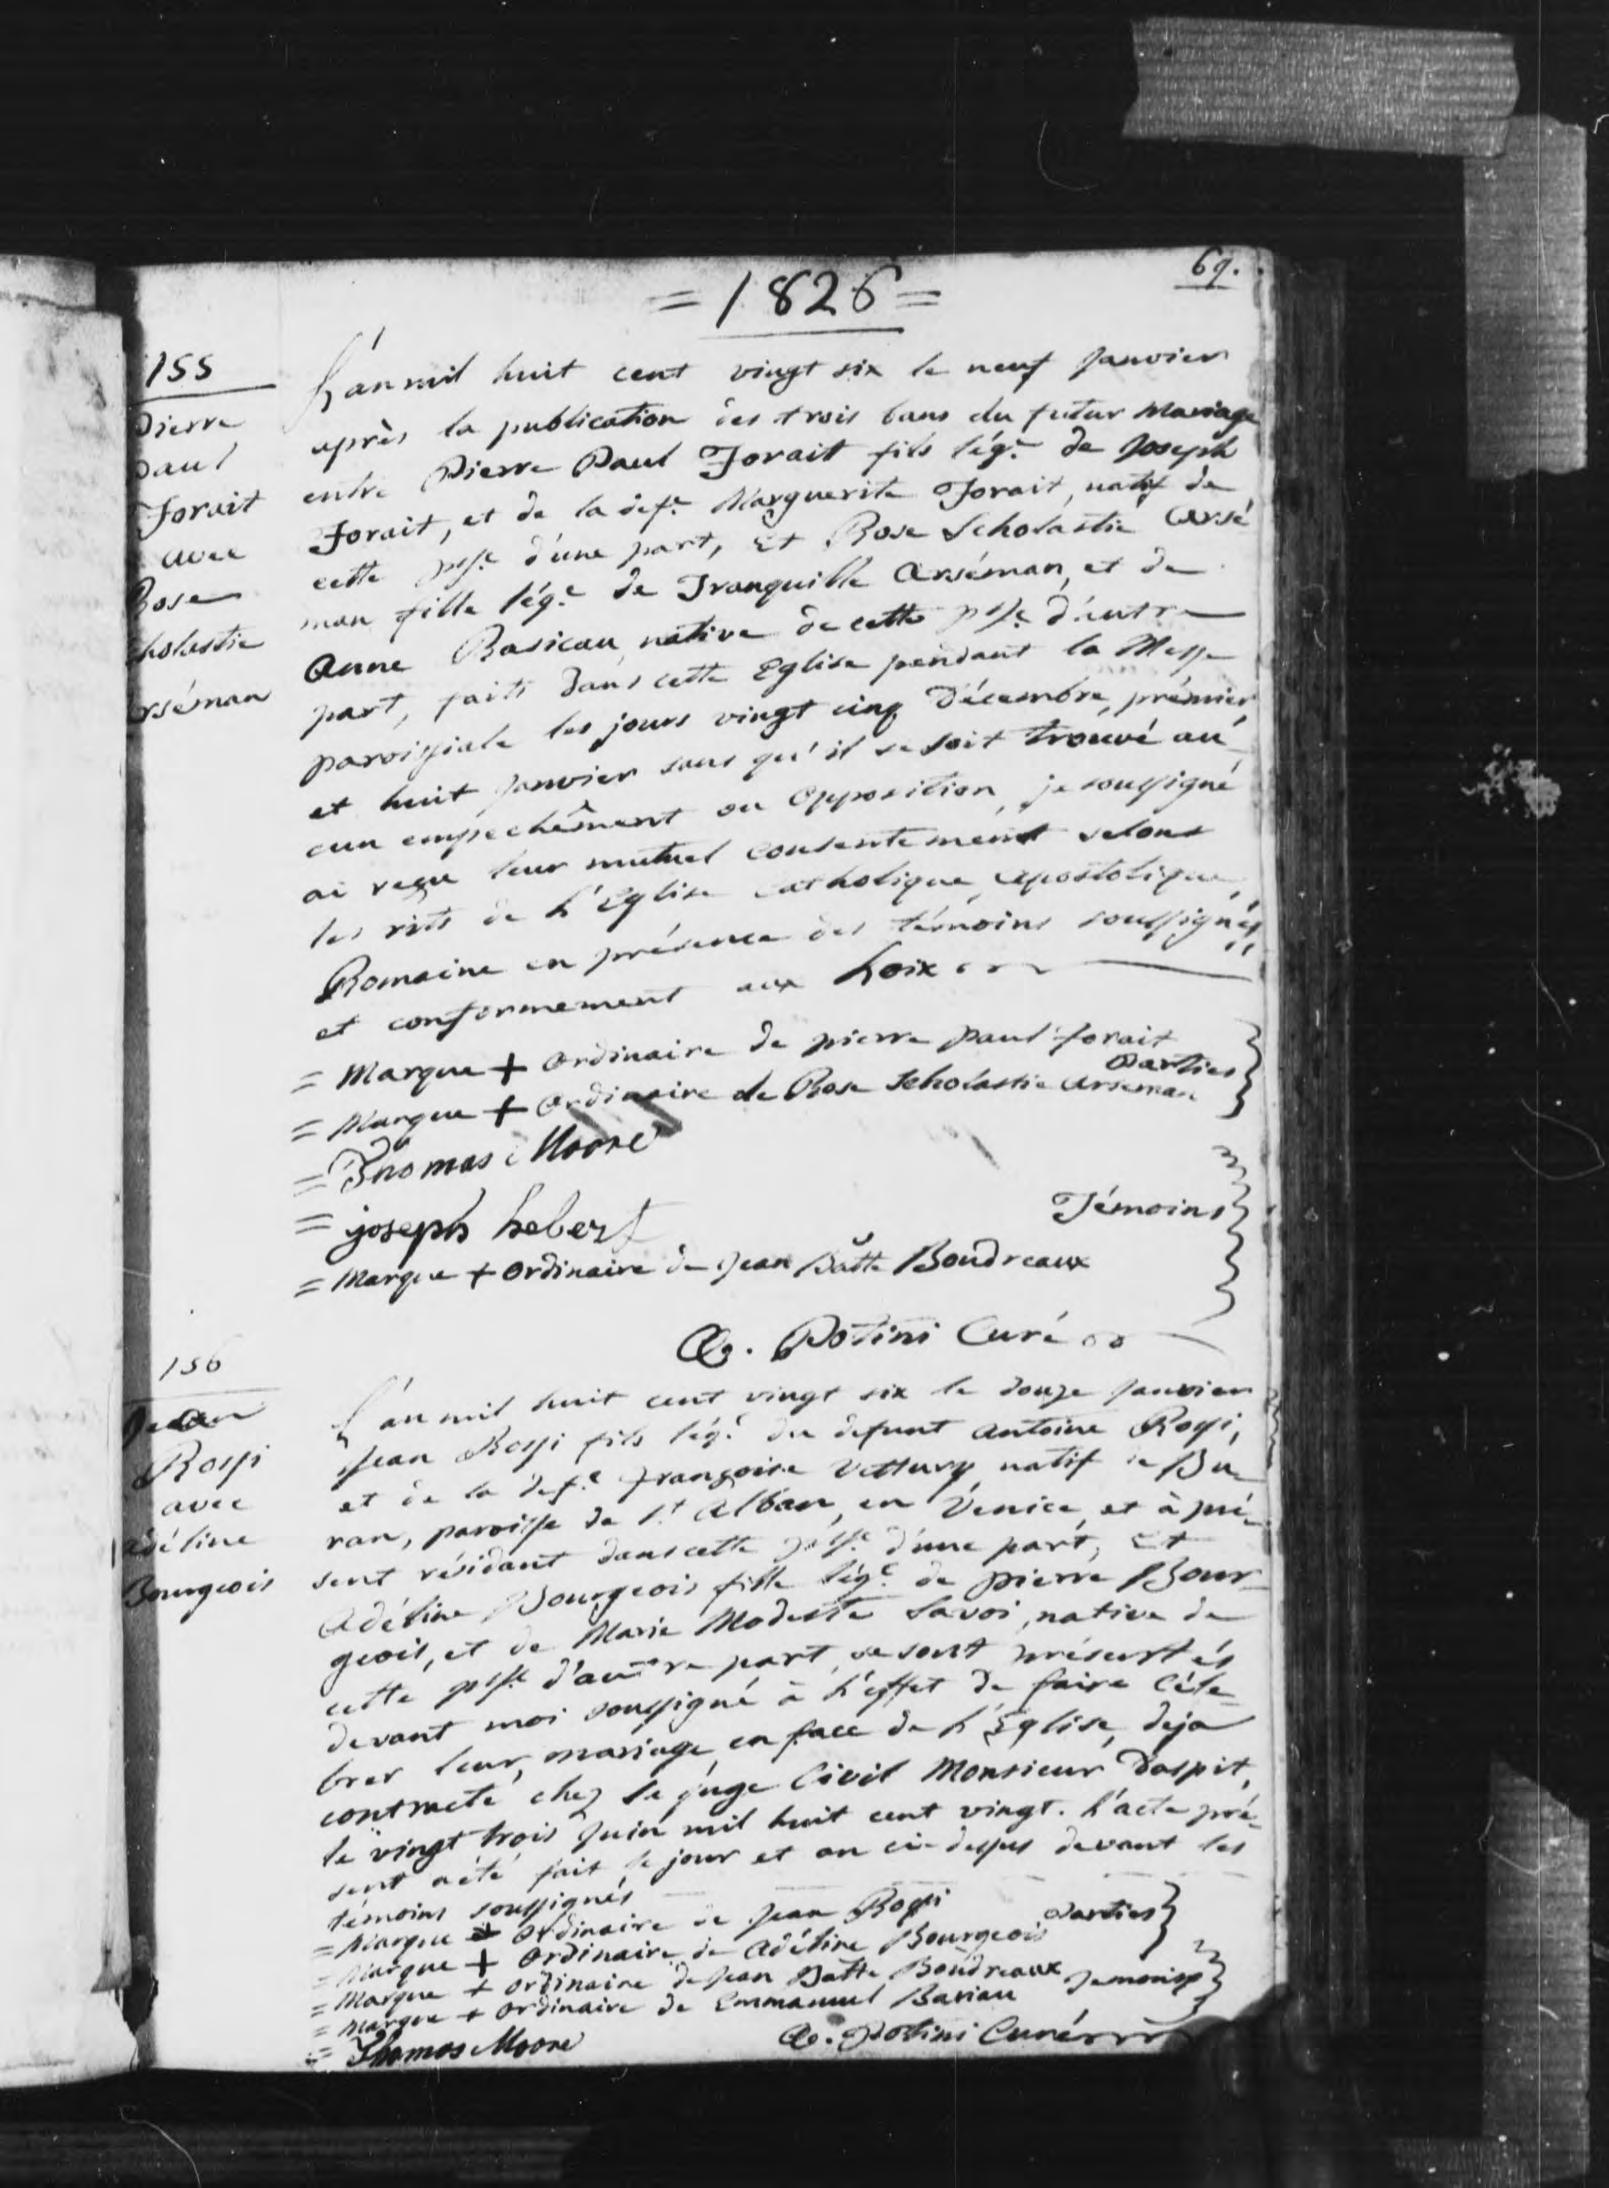 69.
= 1826 =
155
Pierre
Paul
Forait
avec
Rose
cholastie
rséman
L'an mil huit cent vingt six le neuf Janvier
après la publication des trois bans du futur Mariage
entre Pierre Paul Forait fils lége de Joseph
Forait, et de la defe Marguerite Forait, natif de
cette psse d'une part, Et Rose Scholastie Arsé
man fille lége de Tranquille Arséman, et de
Anne Basicau, native de cette psse d'autre
part, faits dans cette Eglise pendant la Messe
paroissiale les jours vingt cinq Décembre, prémier,
et huit Janvier sans qu'il se soit trouvé au-
cun empechêment ou Opposition, je soussigné
ai reçu leur mutuel consentemént selons
les rits de L'Eglise Catholique, Apostolique,
Romaine en présence des témoins soussignés,
et conformement aux Loix
= Marque + Ordinaire de pierre paul forait
Parties
= Marque + Ordinaire de Rose Scholastie Arseman
= Thomas Moore
= joseph hebert
Témoins
= Marque + Ordinaire de Jean Batte Boudreaux
A. Potini Curé
156
Jean
Rossi
avec
adéline
Bourgeois
L'an mil huit cent vingt six le douze Janvier
Jean Rossi fils lége du defunt Antoine Rossi,
et de la defe Françoise Vettury natif de Bu-
ran, paroisse de St Alban, en Venice, et à pré-
sent résidant dans cette psse d'une part, Et
Adéline Bourgeois fille lége de pierre Bour-
geois, et de Marie Modeste Savoi, native de
cette psse d'autre part, se sont présentés
devant moi soussigné à L'effet de faire Céle-
brer leur mariage en face de L'Eglise, deja
contracté chez le juge Civil Monsieur Daspit,
le vingt trois Juin mil huit cent vingt. L'acte pré-
sent a été fait le jour et an ci-dessus devant les
témoins soussignés
= Marque + Ordinaire de Jean Rossi
Parties
= Marque + Ordinaire de Adéline Bourgeois
= Marque + Ordinaire de Jean Batte Boudreaux
= Marque + Ordinaire de Emmanuel Bariau
= Thomas Moore
A. Potini Curé